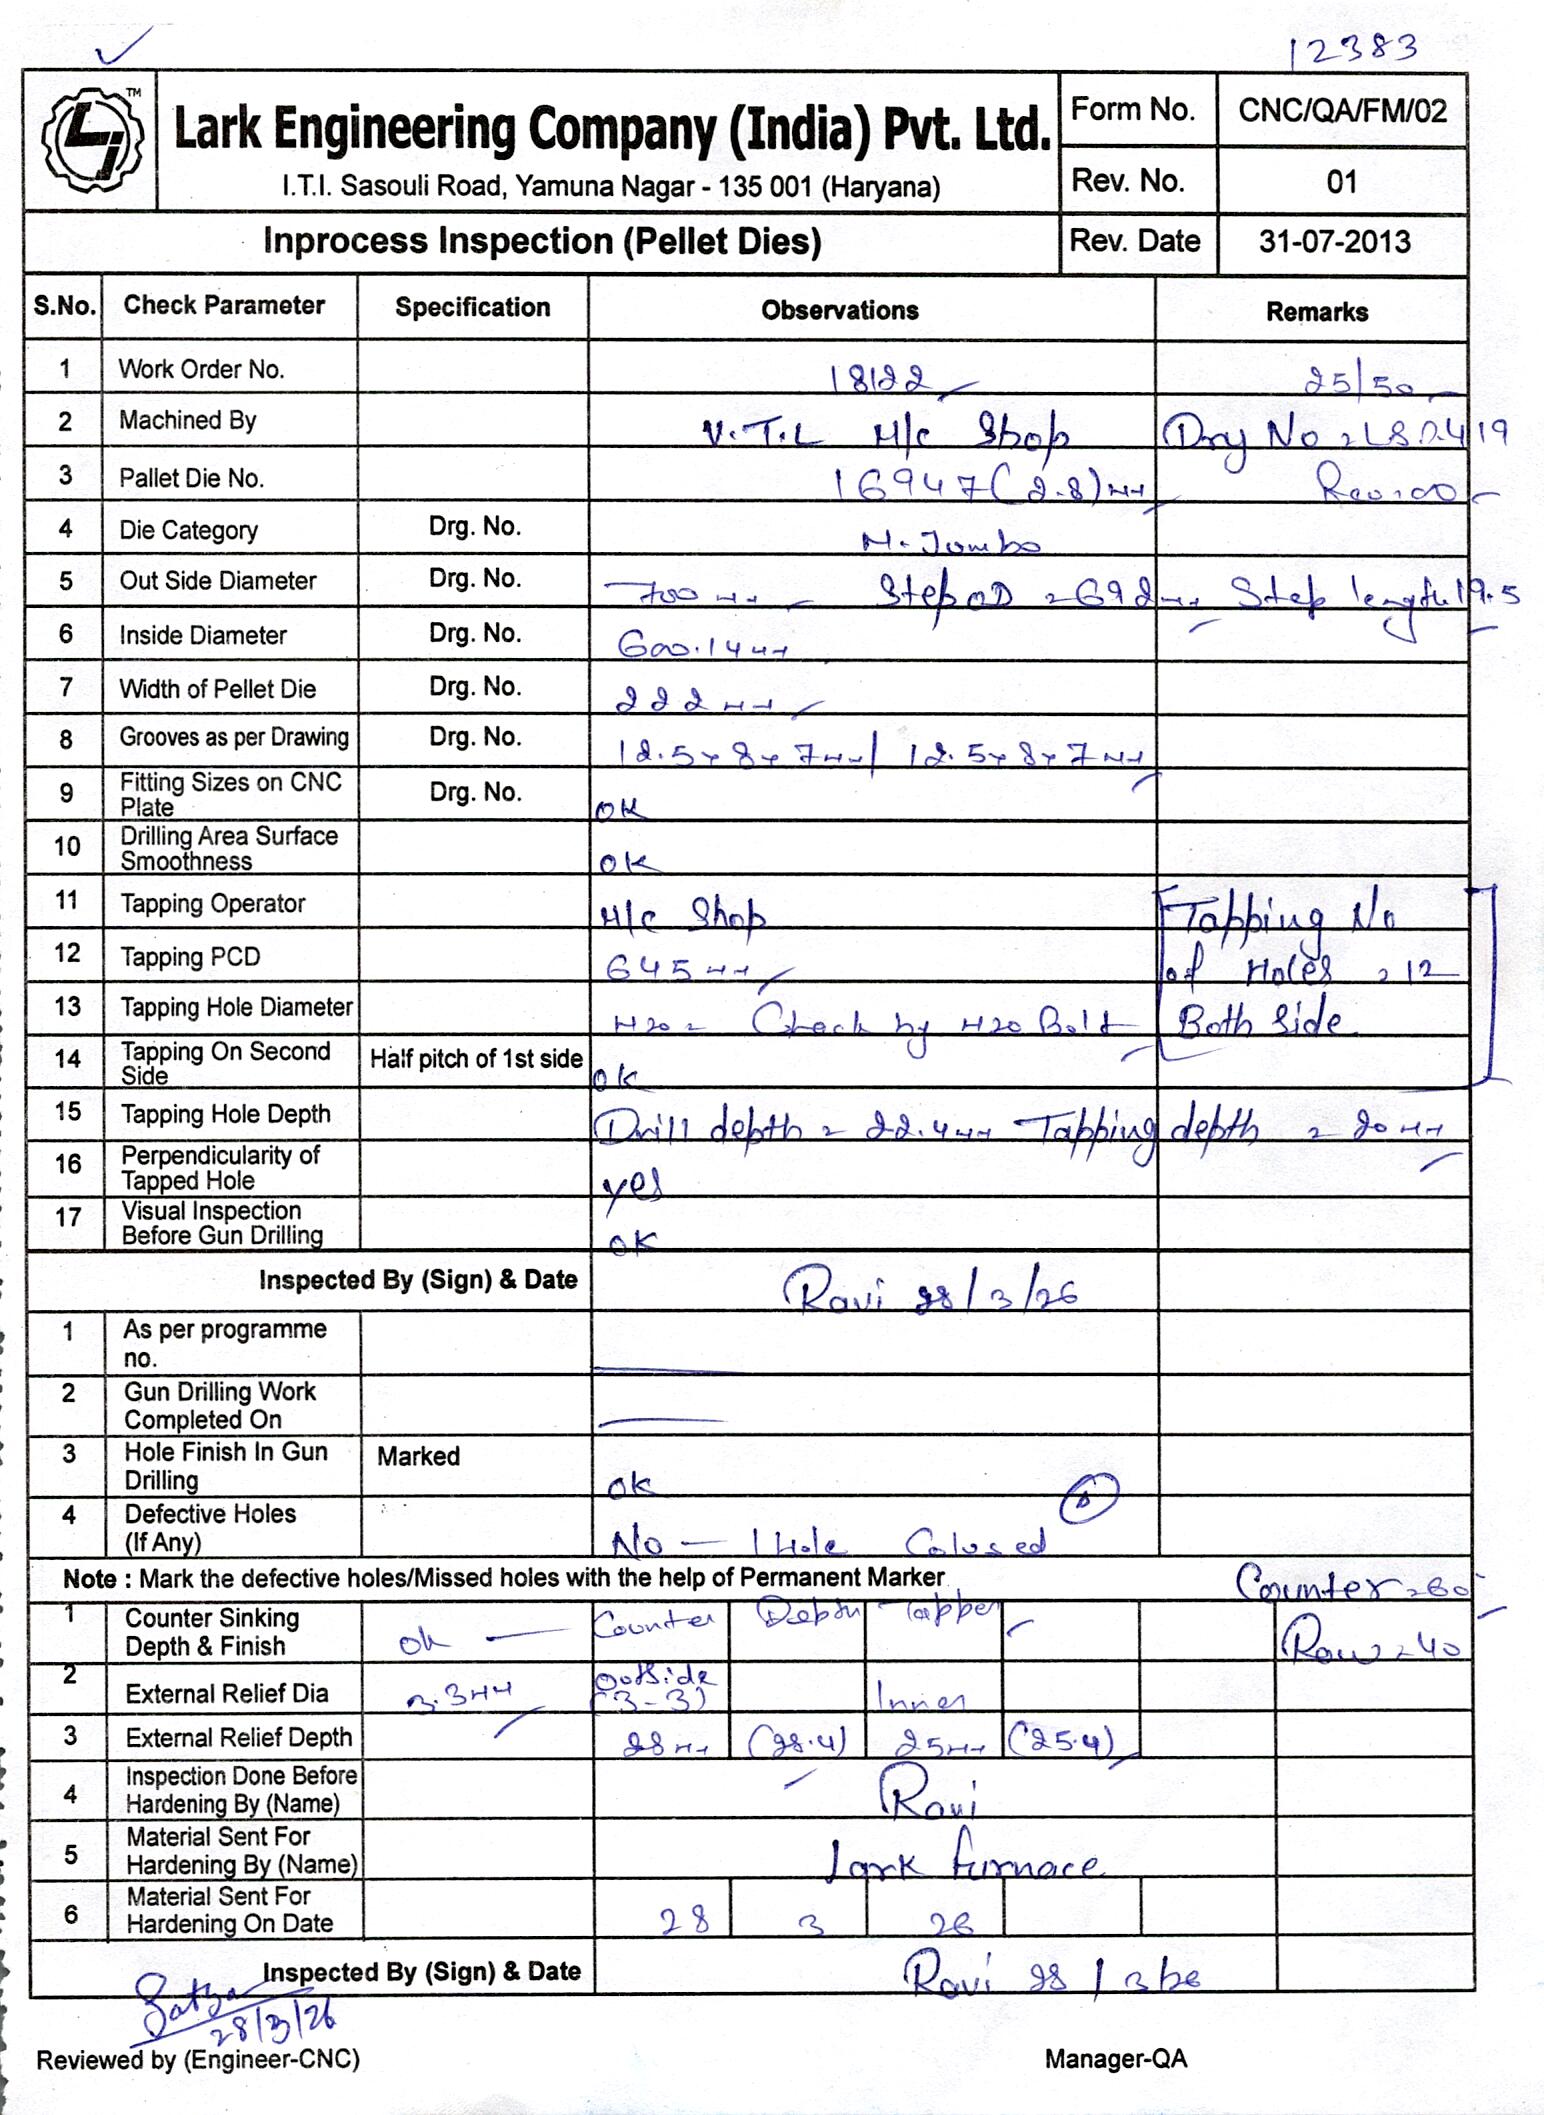 12383
TM
Lark Engineering Company (India) Pvt. Ltd.
I.T.I. Sasouli Road, Yamuna Nagar - 135 001 (Haryana)
Form No. CNC/QA/FM/02
Rev. No. 01
Inprocess Inspection (Pellet Dies) Rev. Date 31-07-2013
S.No. Check Parameter Specification Observations Remarks
1 Work Order No. 18122 25/50
2 Machined By V.T.L M/c Shop
3 Pallet Die No. 16947 (2.8)mm Rev:00
4 Die Category Drg. No. M. Jumbo
5 Out Side Diameter Drg. No. 700 mm Step OD = 692mm Step length 19.5
6 Inside Diameter Drg. No. 600.14mm
7 Width of Pellet Die Drg. No. 222mm
8 Grooves as per Drawing Drg. No. 12.5x8x7mm/ 12.5x8x7mm
9 Fitting Sizes on CNC Plate Drg. No. OK
10 Drilling Area Surface Smoothness OK
11 Tapping Operator M/c Shop Tapping No
12 Tapping PCD 645mm of Holes = 12
13 Tapping Hole Diameter M20 = Check by M20 Bolt Both Side
14 Tapping On Second Side Half pitch of 1st side ok
15 Tapping Hole Depth Drill depth = 22.4mm Tapping depth = 20mm
16 Perpendicularity of Tapped Hole yes
17 Visual Inspection Before Gun Drilling OK
Inspected By (Sign) & Date Ravi 28/3/26
1 As per programme no.
2 Gun Drilling Work Completed On
3 Hole Finish In Gun Drilling Marked OK
4 Defective Holes (If Any) No — 1 Hole Colused
Note : Mark the defective holes/Missed holes with the help of Permanent Marker Counter = 60
1 Counter Sinking Depth & Finish ok — Counter Depth Tapper Row = 40
2 External Relief Dia 3.3mm Outside (3-3) Inner
3 External Relief Depth 28mm (28.4) 25mm (25.4)
4 Inspection Done Before Hardening By (Name) Ravi
5 Material Sent For Hardening By (Name) Lark furnace
6 Material Sent For Hardening On Date 28 3 26
Inspected By (Sign) & Date Ravi 28/3/26
28/3/26
Reviewed by (Engineer-CNC) Manager-QA